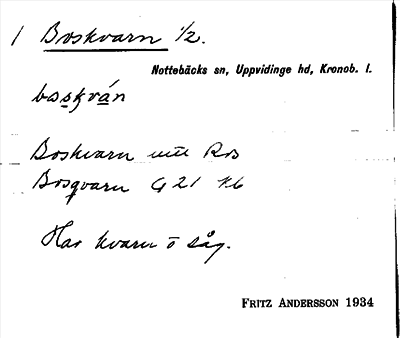 1 Boskvarn 1/2.
Nottebäcks sn, Uppvidinge hd, Kronob. l.
boskván
Boskvarn utt Rob
Bosqvarn G 21 Kb
Har kvarn o såg.
FRITZ ANDERSSON 1934